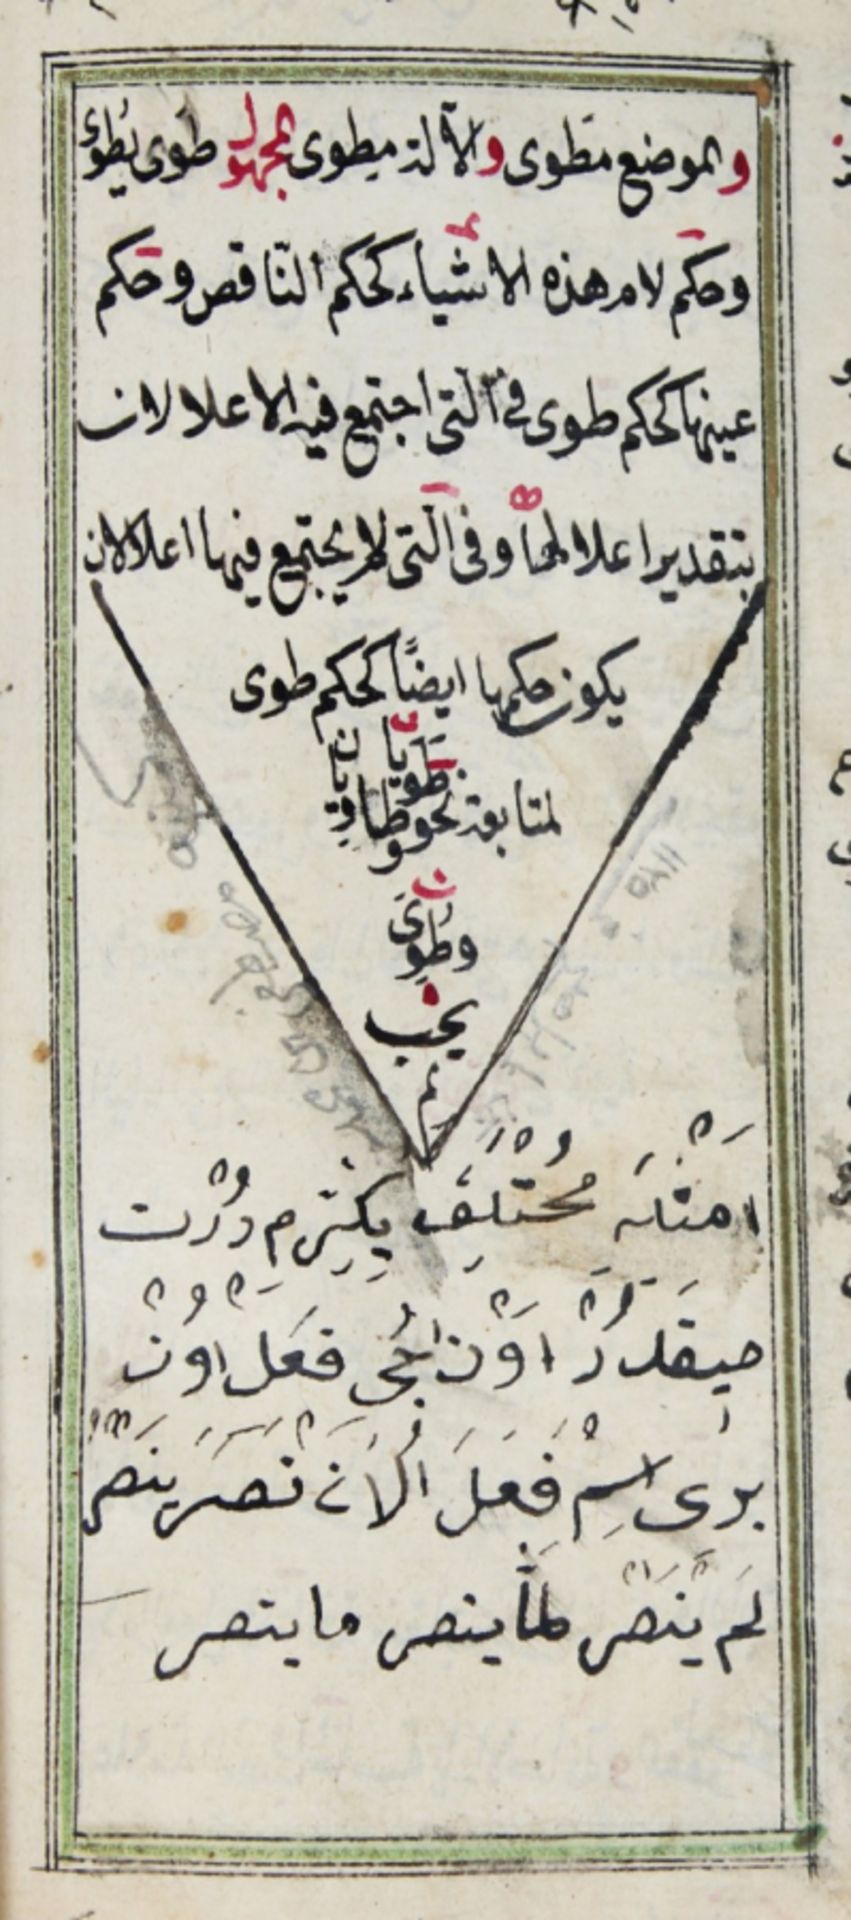 والموضع مَطوى والآلة مِطوى المجهول طُوِى يُطْوٰى
وحكم لام هذه الاشياء كحكم النّاقص وحكم
عينها كحكم طوى فى الّتى اجتمع فيه الاعلالان
بتقدير اعلالها وفى الّتى لم يجتمع فيها اعلالان
يكون حكمها ايضًا كحكم طوى
لمتابعة نحو طَوَيَا طاوِيَان
وطُوِىَ
يجب
تم
امثله مُختلِفَ يِكِرم دُرْت
صيغه دُرْ اوّن اُچى فعل اون
برى اسم فِعلَ الاَن نَصَرَ ينصر
لَم يَنْصُر لمّا ينصر ما ينصر